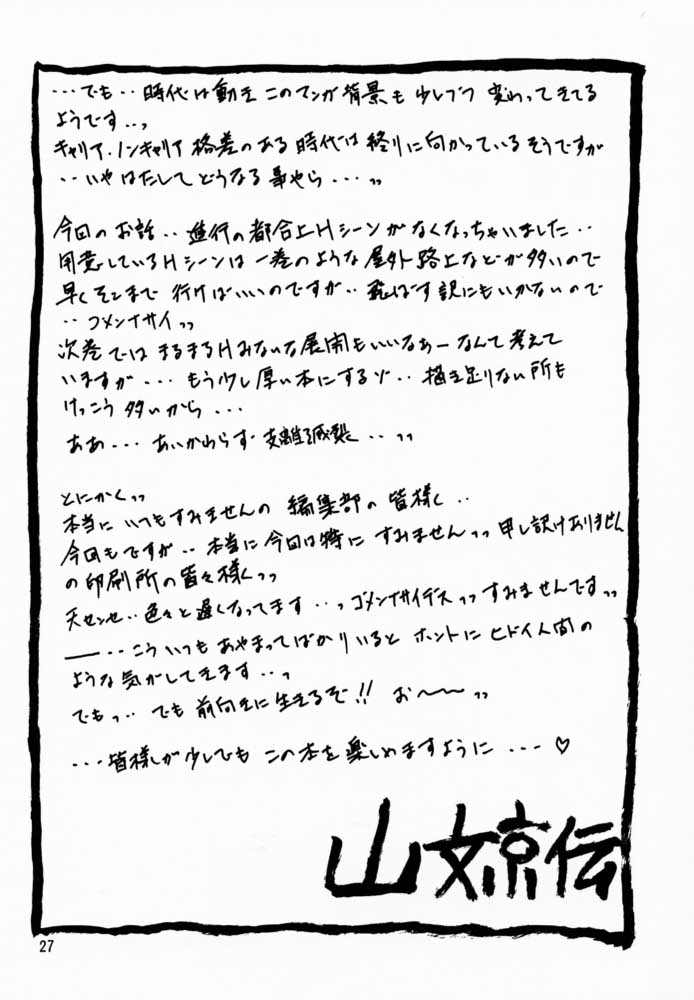 ・・・でも・・時代は動き このマンガ背景も少しづつ 変わってきてる
ようです・・っ
キャリア・ノンキャリア 格差のある時代は終りに向かっているそうですが
・・いやはたしてどうなる事やら・・・っっ
今回のお話・・進行の都合上Hシーンがなくなっちゃいました・・
用意しているHシーンは一巻のような屋外路上などが多いので
早くそこまで行けばいいのですが・・飛ばす訳にもいかないので
・・コメンナサイっっ
次巻では まるまるHみたいな展開もいいなぁーなんて考えて
いますが・・・もう少し厚い本にするゾ・・描き足りない所も
けっこう多いから・・・
ああ・・・あいかわらず支離滅裂・・っっ
とにかくっっ
本当にいつもすみませんの編集部の皆様く・・
今回もですが・・本当に今回は特に すみませんっっ申し訳ありません
の印刷所の皆々様くっっ
天センセ・・色々と遅くなってます・・っゴメンナサイデスっっすみませんですっっ
――・・こういつもあやまってばかりいると ホントにヒドイ人間の
ような気がしてきます・・っ
でもっ・・でも前向きに生きるぞ!! お〜〜っっ
・・・皆様が少しでも この本を楽しめますように・・・♡
山文京伝
27